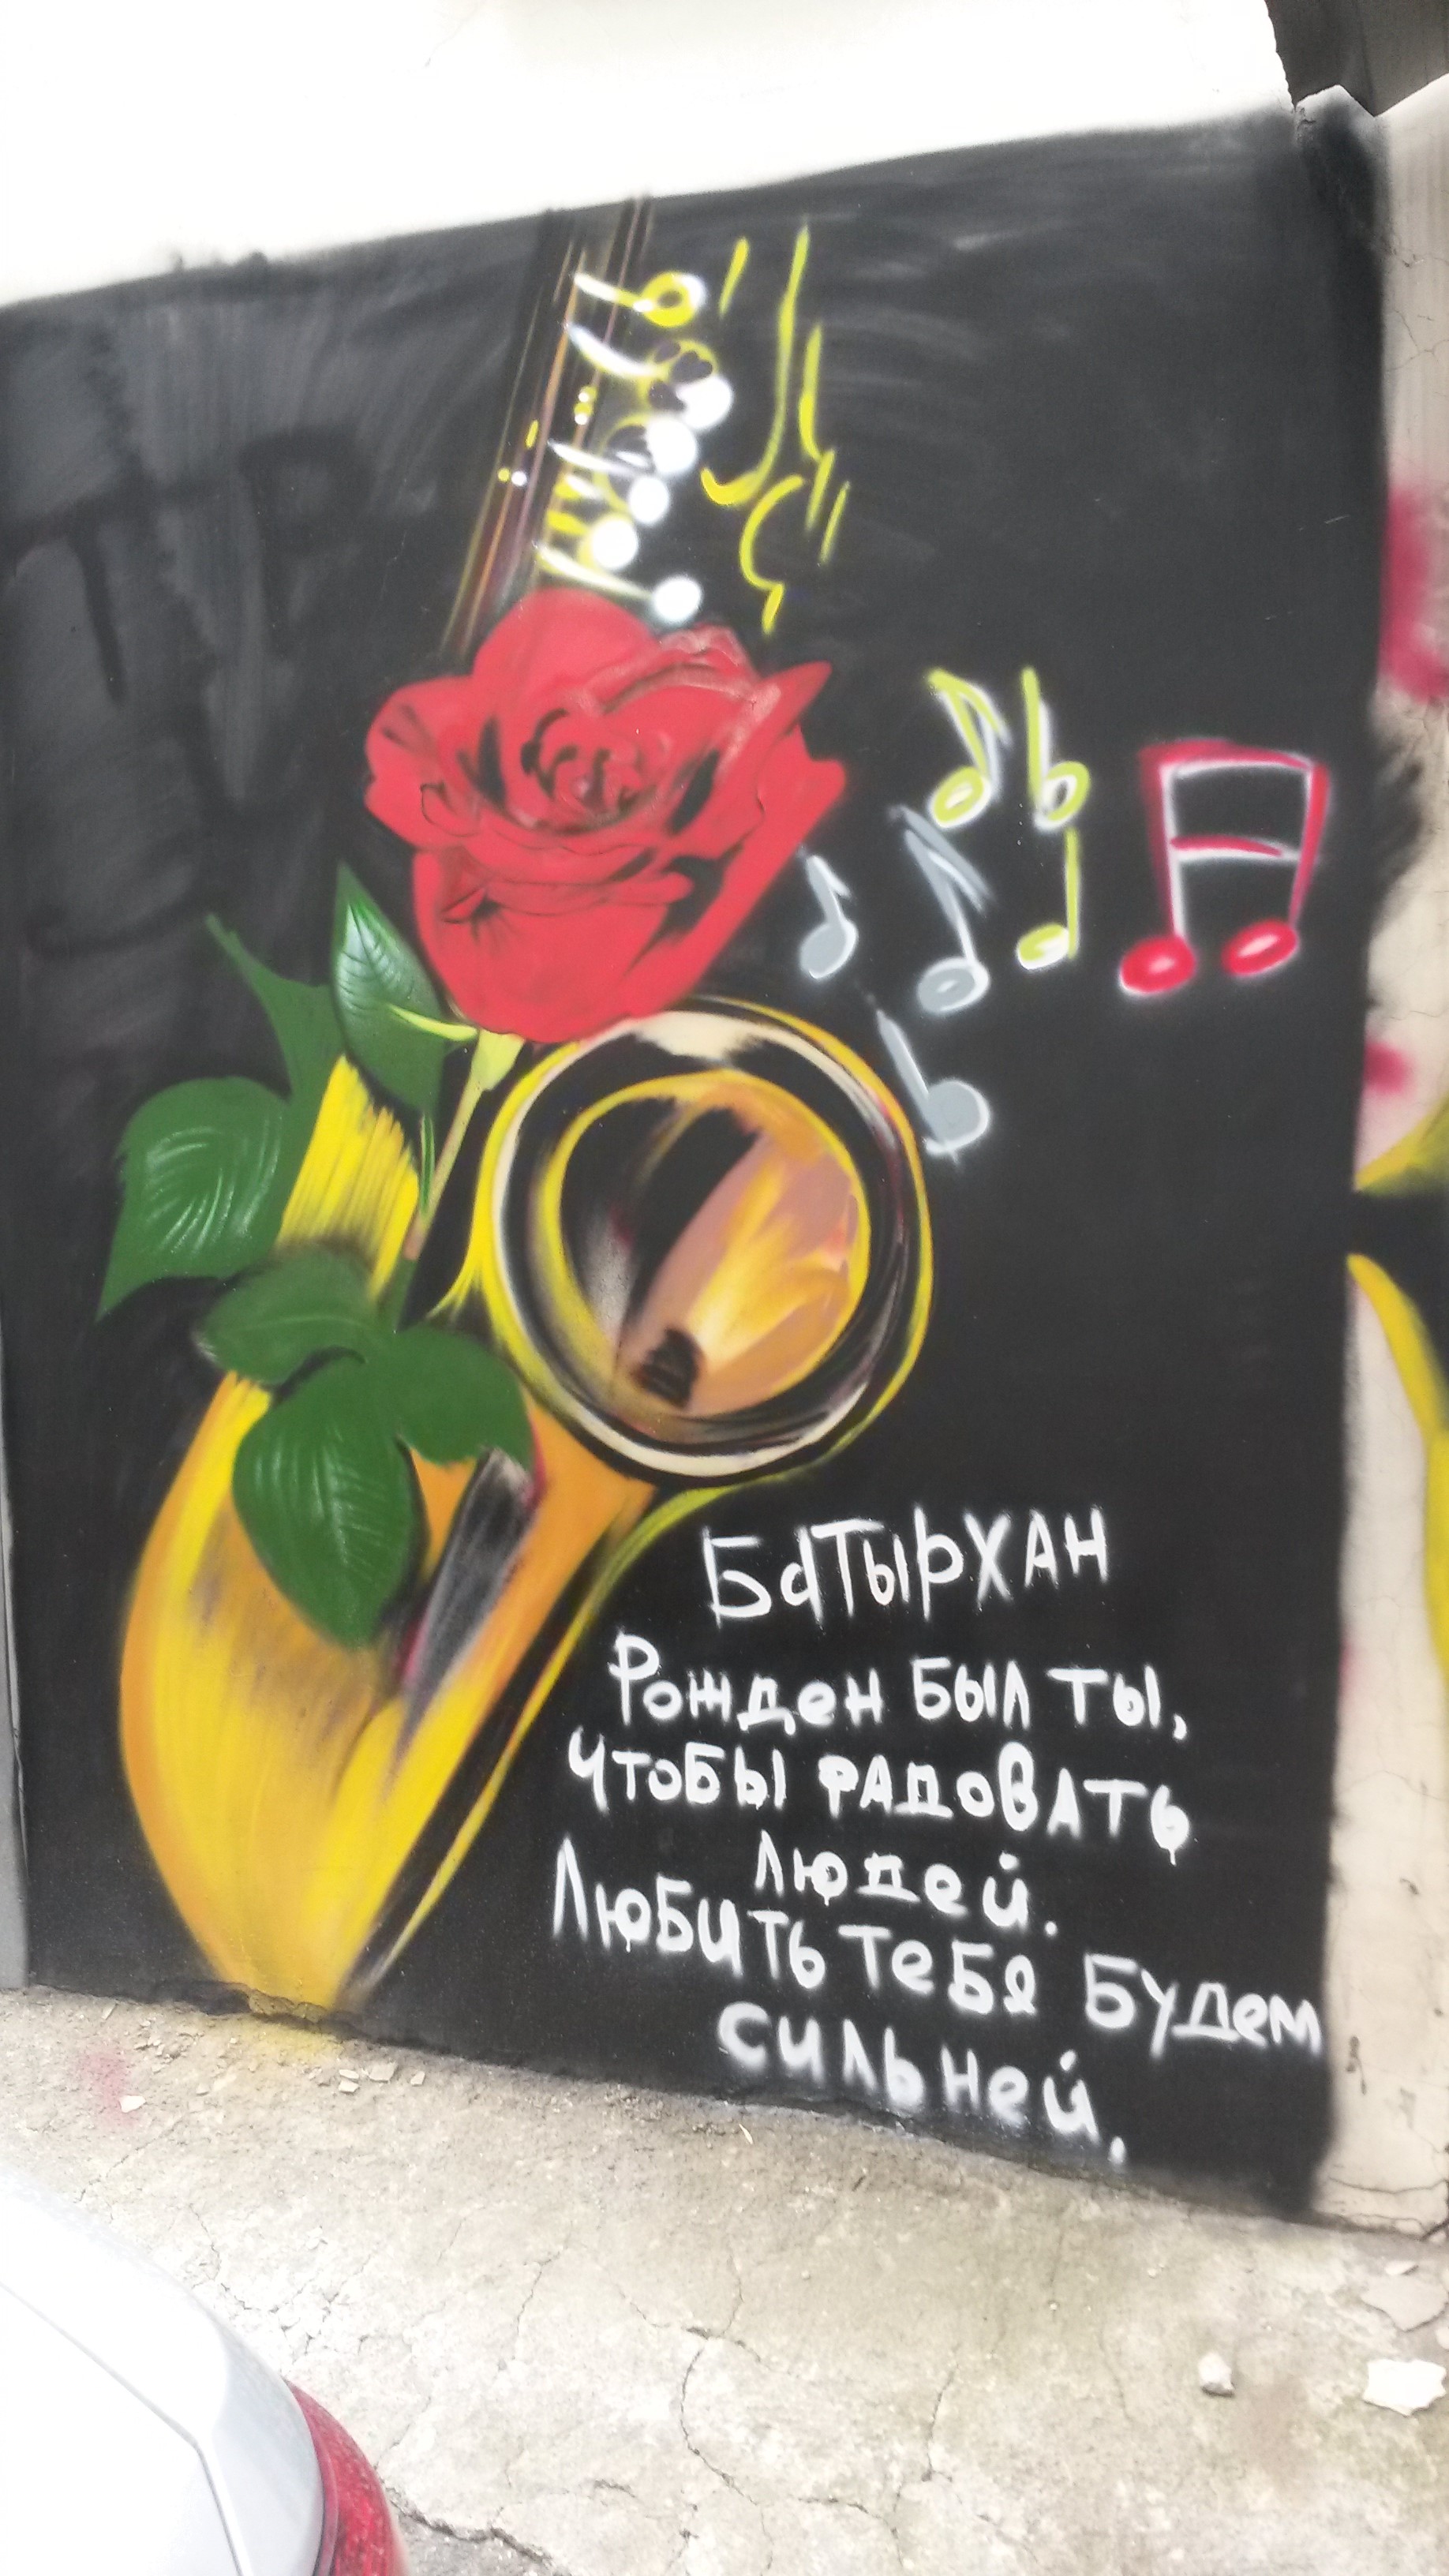 БАТЫРХАН
Рожден был ты,
чтобы радовать
людей.
Любить тебя будем
сильней.